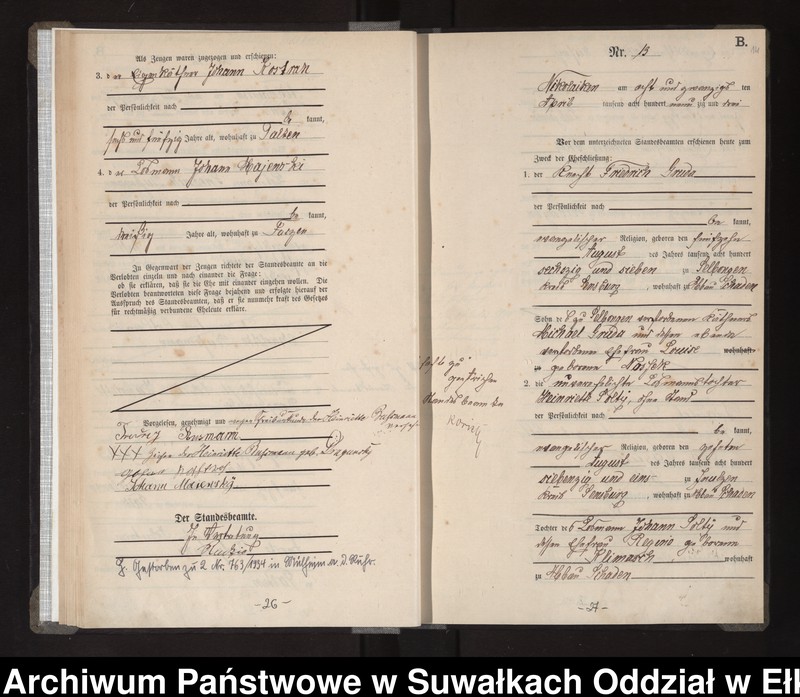 Als Zeugen waren zugezogen und erschienen:
3. d er Eigenkäthner Johann Kostran
der Persönlichkeit nach
be kannt,
sechs und fünfzig Jahre alt, wohnhaft zu Talten
4. d er Losmann Johann Majewski
der Persönlichkeit nach
be kannt,
dreißig Jahre alt, wohnhaft zu
In Gegenwart der Zeugen richtete der Standesbeamte an die
Verlobten einzeln und nach einander die Frage:
ob sie erklären, daß sie die Ehe mit einander eingehen wollen. Die
Verlobten beantworteten diese Frage bejahend und erfolgte hierauf der
Ausspruch des Standesbeamten, daß er sie nunmehr kraft des Gesetzes
für rechtmäßig verbundene Eheleute erkläre.
Vorgelesen, genehmigt und
XXX
Johann
Der Standesbeamte.
In Vertretung
2. Gestorben zu 2 Nr. 763/1934 in Mülheim a. d. Ruhr.
-26-
gestrichen
Standesbeamten
B.
Nr. 13
Nikolaiken am acht und zwanzigs ten
April tausend acht hundert neun zig und drei
Vor dem unterzeichneten Standesbeamten erschienen heute zum
Zweck der Eheschließung:
1. der Knecht Friedrich Gruda
der Persönlichkeit nach
be kannt,
evangelischer Religion, geboren den fünfzehn
August des Jahres tausend acht hundert
sechszig und sieben zu Selbongen
Kreis Sensburg, wohnhaft zu Abbau Schaden
Sohn de s zu Selbongen verstorbenen Käthners
Michael Gruda und dessen ebenda
verstorbenen Ehefrau Louise wohnhaft
zu geborene
2. die unverehelichte Losmannstochter
Heinriette
der Persönlichkeit nach
be kannt,
evangelischer Religion, geboren den zehnten
August des Jahres tausend acht hundert
siebenzig und eins zu
Kreis Sensburg, wohnhaft zu Abbau Schaden
Tochter de s Losmann Johann und
dessen Ehefrau Regine geborene
Klimasch wohnhaft
zu Abbau Schaden
-27-
Archiwum Państwowe w Suwałkach Oddział w Eł